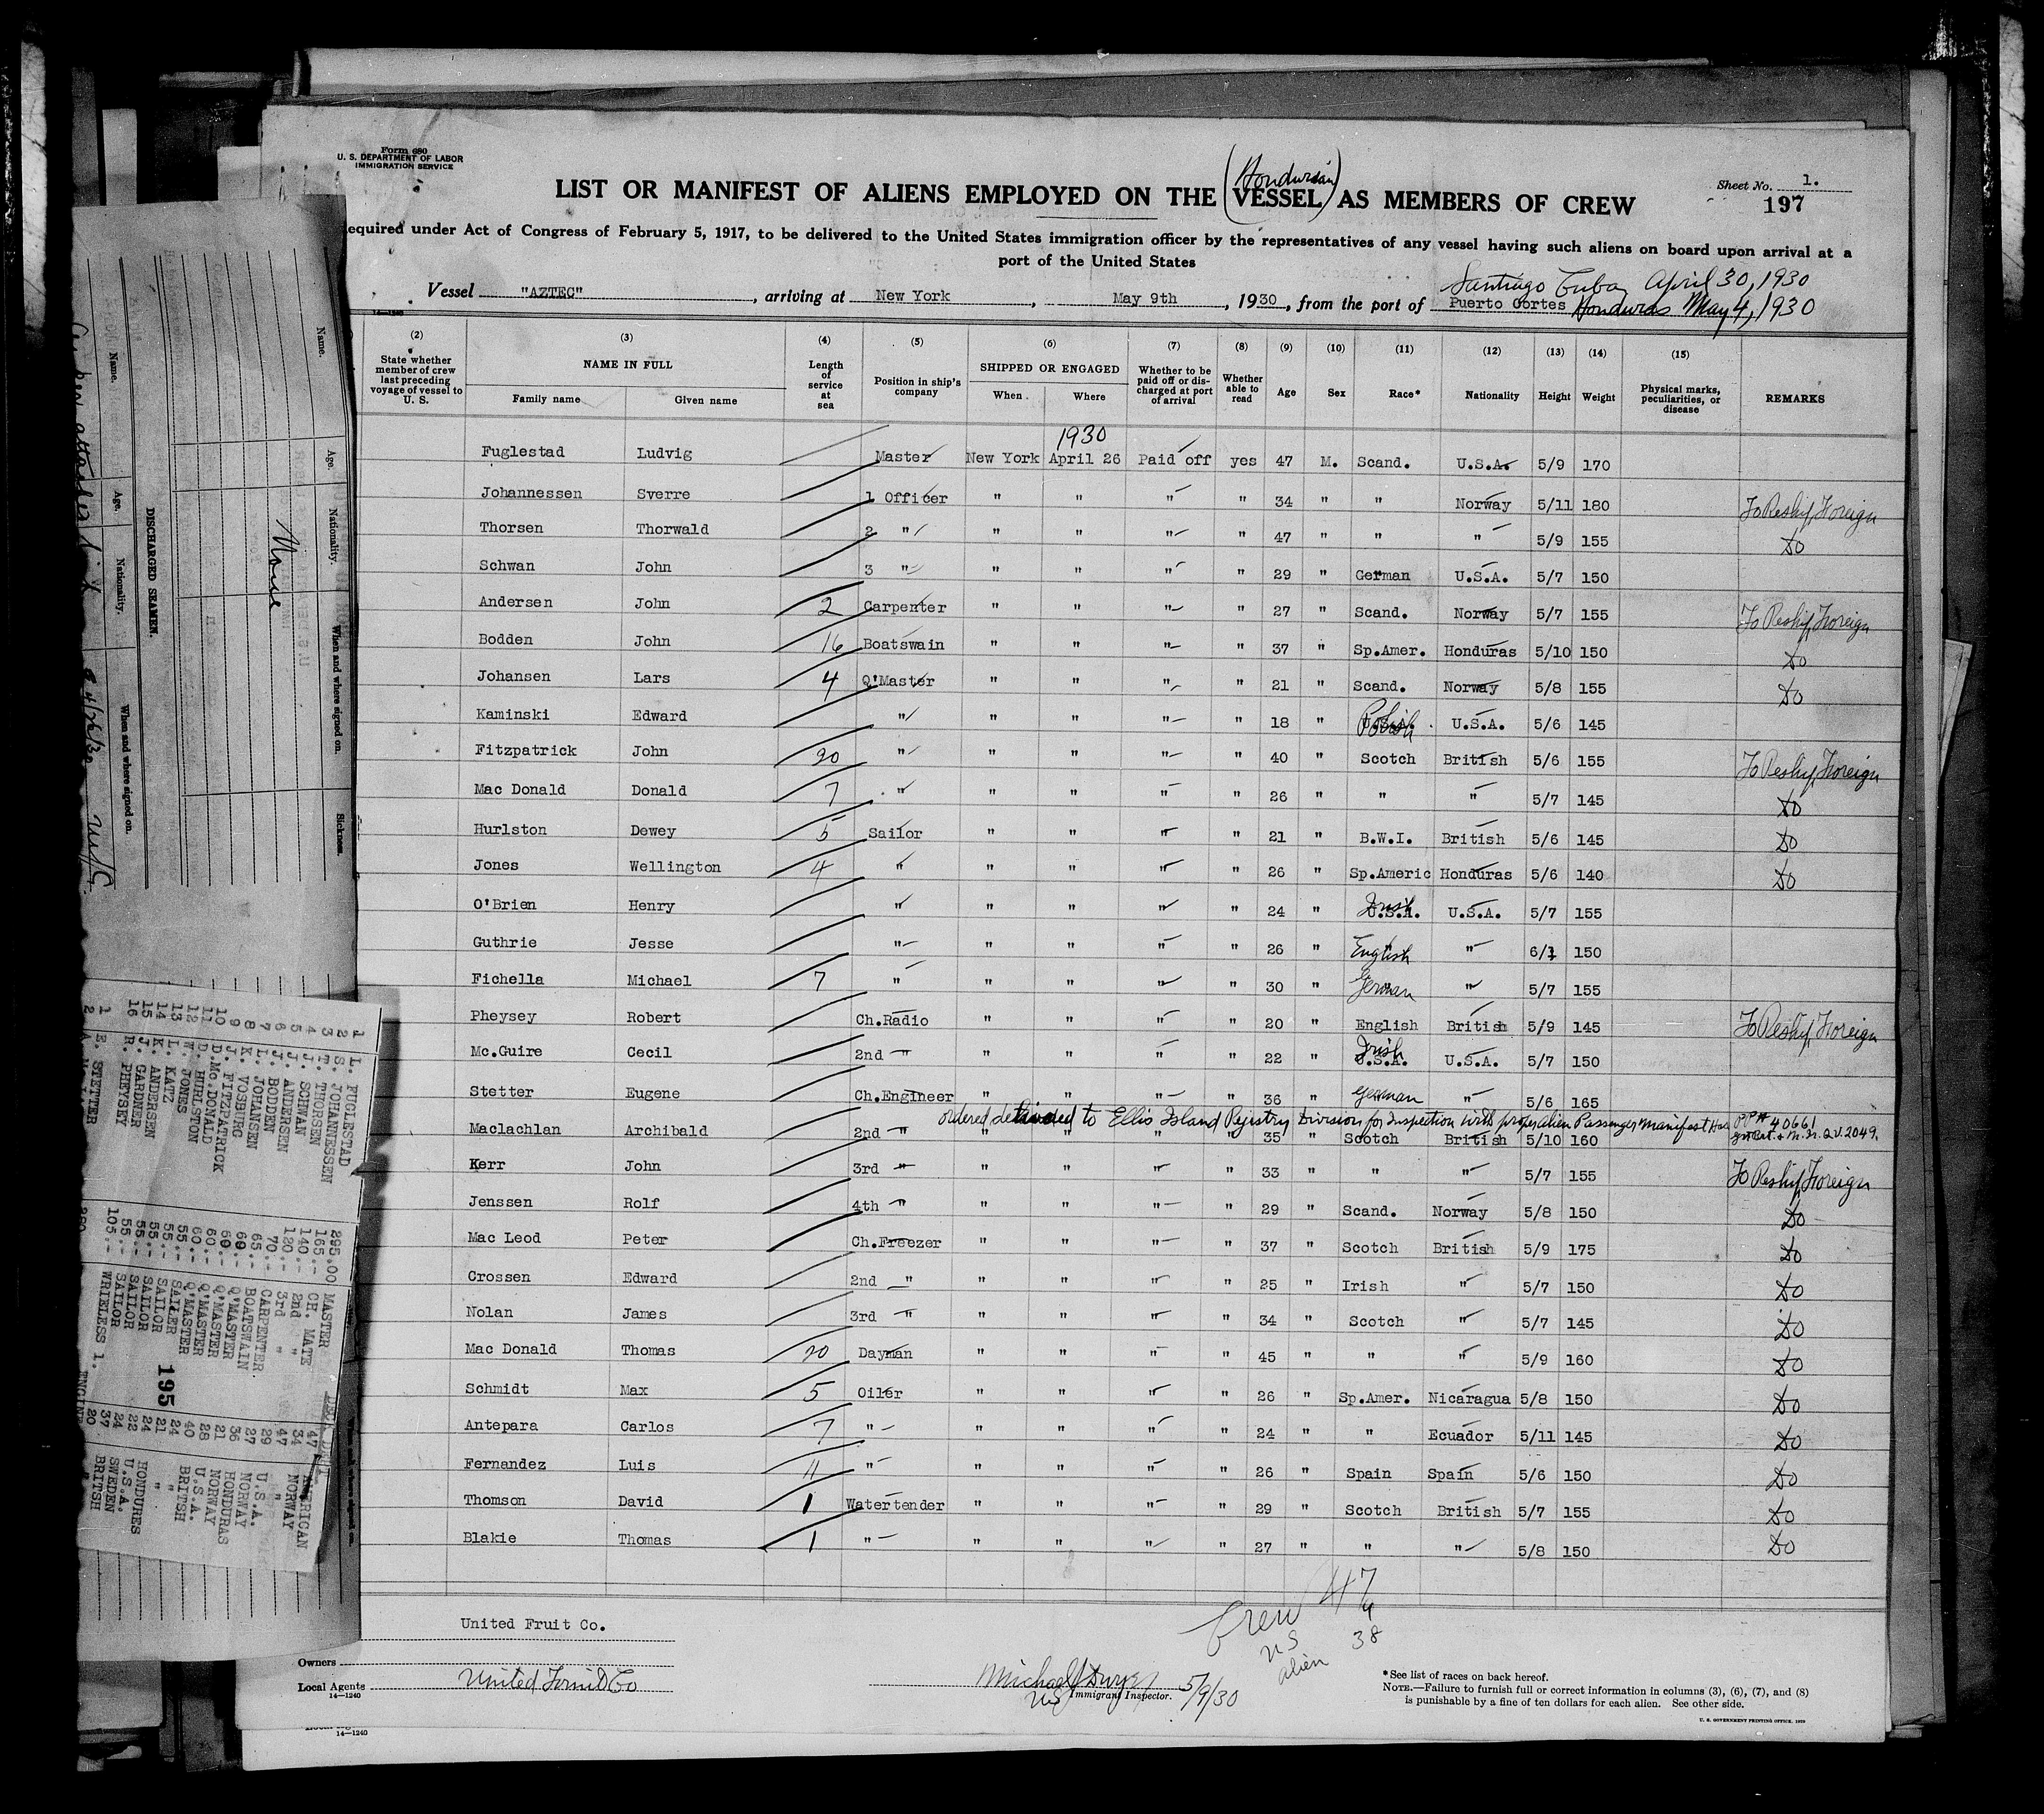 Form 680
U. S. DEPARTMENT OF LABOR
IMMIGRATION SERVICE
Sheet No. 1.
197
(Hondurian)
LIST OR MANIFEST OF ALIENS EMPLOYED ON THE VESSEL AS MEMBERS OF CREW
equired under Act of Congress of February 5, 1917, to be delivered to the United States immigration officer by the representatives of any vessel having such aliens on board upon arrival at a
port of the United States
Santiago Cuba April 30, 1930
Vessel "AZTEC", arriving at New York, May 9th, 1930, from the port of Puerto Cortes Honduras May 4, 1930
(2) (3) (4) (5) (6) (7) (8) (9) (10) (11) (12) (13) (14) (15)
State whether member of crew last preceding voyage of vessel to U. S.
NAME IN FULL
Family name Given name
Length of service at sea
Position in ship's company
SHIPPED OR ENGAGED
When Where
Whether to be paid off or discharged at port of arrival
Whether able to read
Age Sex Race* Nationality Height Weight
Physical marks, peculiarities, or disease
REMARKS
1930
Fuglestad Ludvig Master New York April 26 Paid off yes 47 M. Scand. U.S.A. 5/9 170
Johannessen Sverre 1 Officer " " " " 34 " " Norway 5/11 180 To Reship Foreign
Thorsen Thorwald 2 " " " " " 47 " " " 5/9 155 Do
Schwan John 3 " " " " " 29 " German U.S.A. 5/7 150
Andersen John 2 Carpenter " " " " 27 " Scand. Norway 5/7 155 To Reship Foreign
Bodden John 16 Boatswain " " " " 37 " Sp.Amer. Honduras 5/10 150 Do
Johansen Lars 4 Q'Master " " " " 21 " Scand. Norway 5/8 155 Do
Kaminski Edward " " " " " 18 " Polish U.S.A. 5/6 145
Fitzpatrick John 20 " " " " " 40 " Scotch British 5/6 155 To Reship Foreign
Mac Donald Donald 7 " " " " " 26 " " " 5/7 145 Do
Hurlston Dewey 5 Sailor " " " " 21 " B.W.I. British 5/6 145 Do
Jones Wellington 4 " " " " " 26 " Sp.Americ Honduras 5/6 140 Do
O'Brien Henry " " " " " 24 " U.S.A. Irish U.S.A. 5/7 155
Guthrie Jesse " " " " " 26 " English " 6/1 150
Fichella Michael 7 " " " " " 30 " German " 5/7 155
Pheysey Robert Ch.Radio " " " " 20 " English British 5/9 145 To Reship Foreign
Mc.Guire Cecil 2nd " " " " " 22 " U.S.A. Irish U.S.A. 5/7 150
Stetter Eugene Ch.Engineer " " " " 36 " German " 5/6 165
ordered detained to Ellis Island Registry Division for Inspection with proper alien Passenger Manifest Has PP# 40661
Maclachlan Archibald 2nd " " " " " 35 " Scotch British 5/10 160 2049.
Kerr John 3rd " " " " " 33 " " " 5/7 155 To Reship Foreign
Jenssen Rolf 4th " " " " " 29 " Scand. Norway 5/8 150 Do
Mac Leod Peter Ch.Freezer " " " " 37 " Scotch British 5/9 175 Do
Crossen Edward 2nd " " " " " 25 " Irish " 5/7 150 Do
Nolan James 3rd " " " " " 34 " Scotch " 5/7 145 Do
Mac Donald Thomas 20 Dayman " " " " 45 " " " 5/9 160 Do
Schmidt Max 5 Oiler " " " " 26 " Sp.Amer. Nicaragua 5/8 150 Do
Antepara Carlos 7 " " " " " 24 " " Ecuador 5/11 145 Do
Fernandez Luis 11 " " " " " 26 " Spain Spain 5/6 150 Do
Thomson David 1 Watertender " " " " 29 " Scotch British 5/7 155 Do
Blakie Thomas 1 " " " " " 27 " " " 5/8 150 Do
Crew 47
US 9
alien 38
United Fruit Co.
Owners
Local Agents United Fruit Co
14—1240
Michael J Dwyer 5/9/30
US Immigrant Inspector.
*See list of races on back hereof.
NOTE.—Failure to furnish full or correct information in columns (3), (6), (7), and (8)
is punishable by a fine of ten dollars for each alien. See other side.
U. S. GOVERNMENT PRINTING OFFICE, 1929
14—1240
Name. Age. Nationality. When and where signed on. Sickness.
None
DISCHARGED SEAMEN.
Name. Age. Nationality. When and where signed on.
4/26/30
1 L. FUGLESTAD 295.00 MASTER 47 AMERICAN
2 S. JOHANNESSEN 165.- CH. MATE 34 NORWAY
3 T. THORSEN 140.- 2nd " 47 "
4 J. SCHWAN 120.- 3rd " 29 U.S.A.
5 J. ANDERSEN 70.- CARPENTER 27 NORWAY
6 J. BODDEN 65.- BOATSWAIN 36 HONDURAS
7 L. JOHANSEN 60.- Q'MASTER 21 NORWAY
8 K. VOSBURG 60.- Q'MASTER 28 U.S.A.
9 J. FITZPATRICK 60.- Q'MASTER 40 BRITSH
10 D.Mc.DONALD 60.- Q'MASTER 24 "
11 D. HURLSTON 55.- SAILER 21 "
12 W. JONES 55.- SAILOR 24 HONDURES
13 L. KATZ 55.- SAILOR 22 U.S.A.
14 K. ANDERSEN 55.- SAILOR 24 SWEDEN
15 J. GARDNER 55.- SAILOR 37 BRITISH
16 R. PHEYSEY 105.- WRIELESS 1. 20
1 E. STETTER
2
195